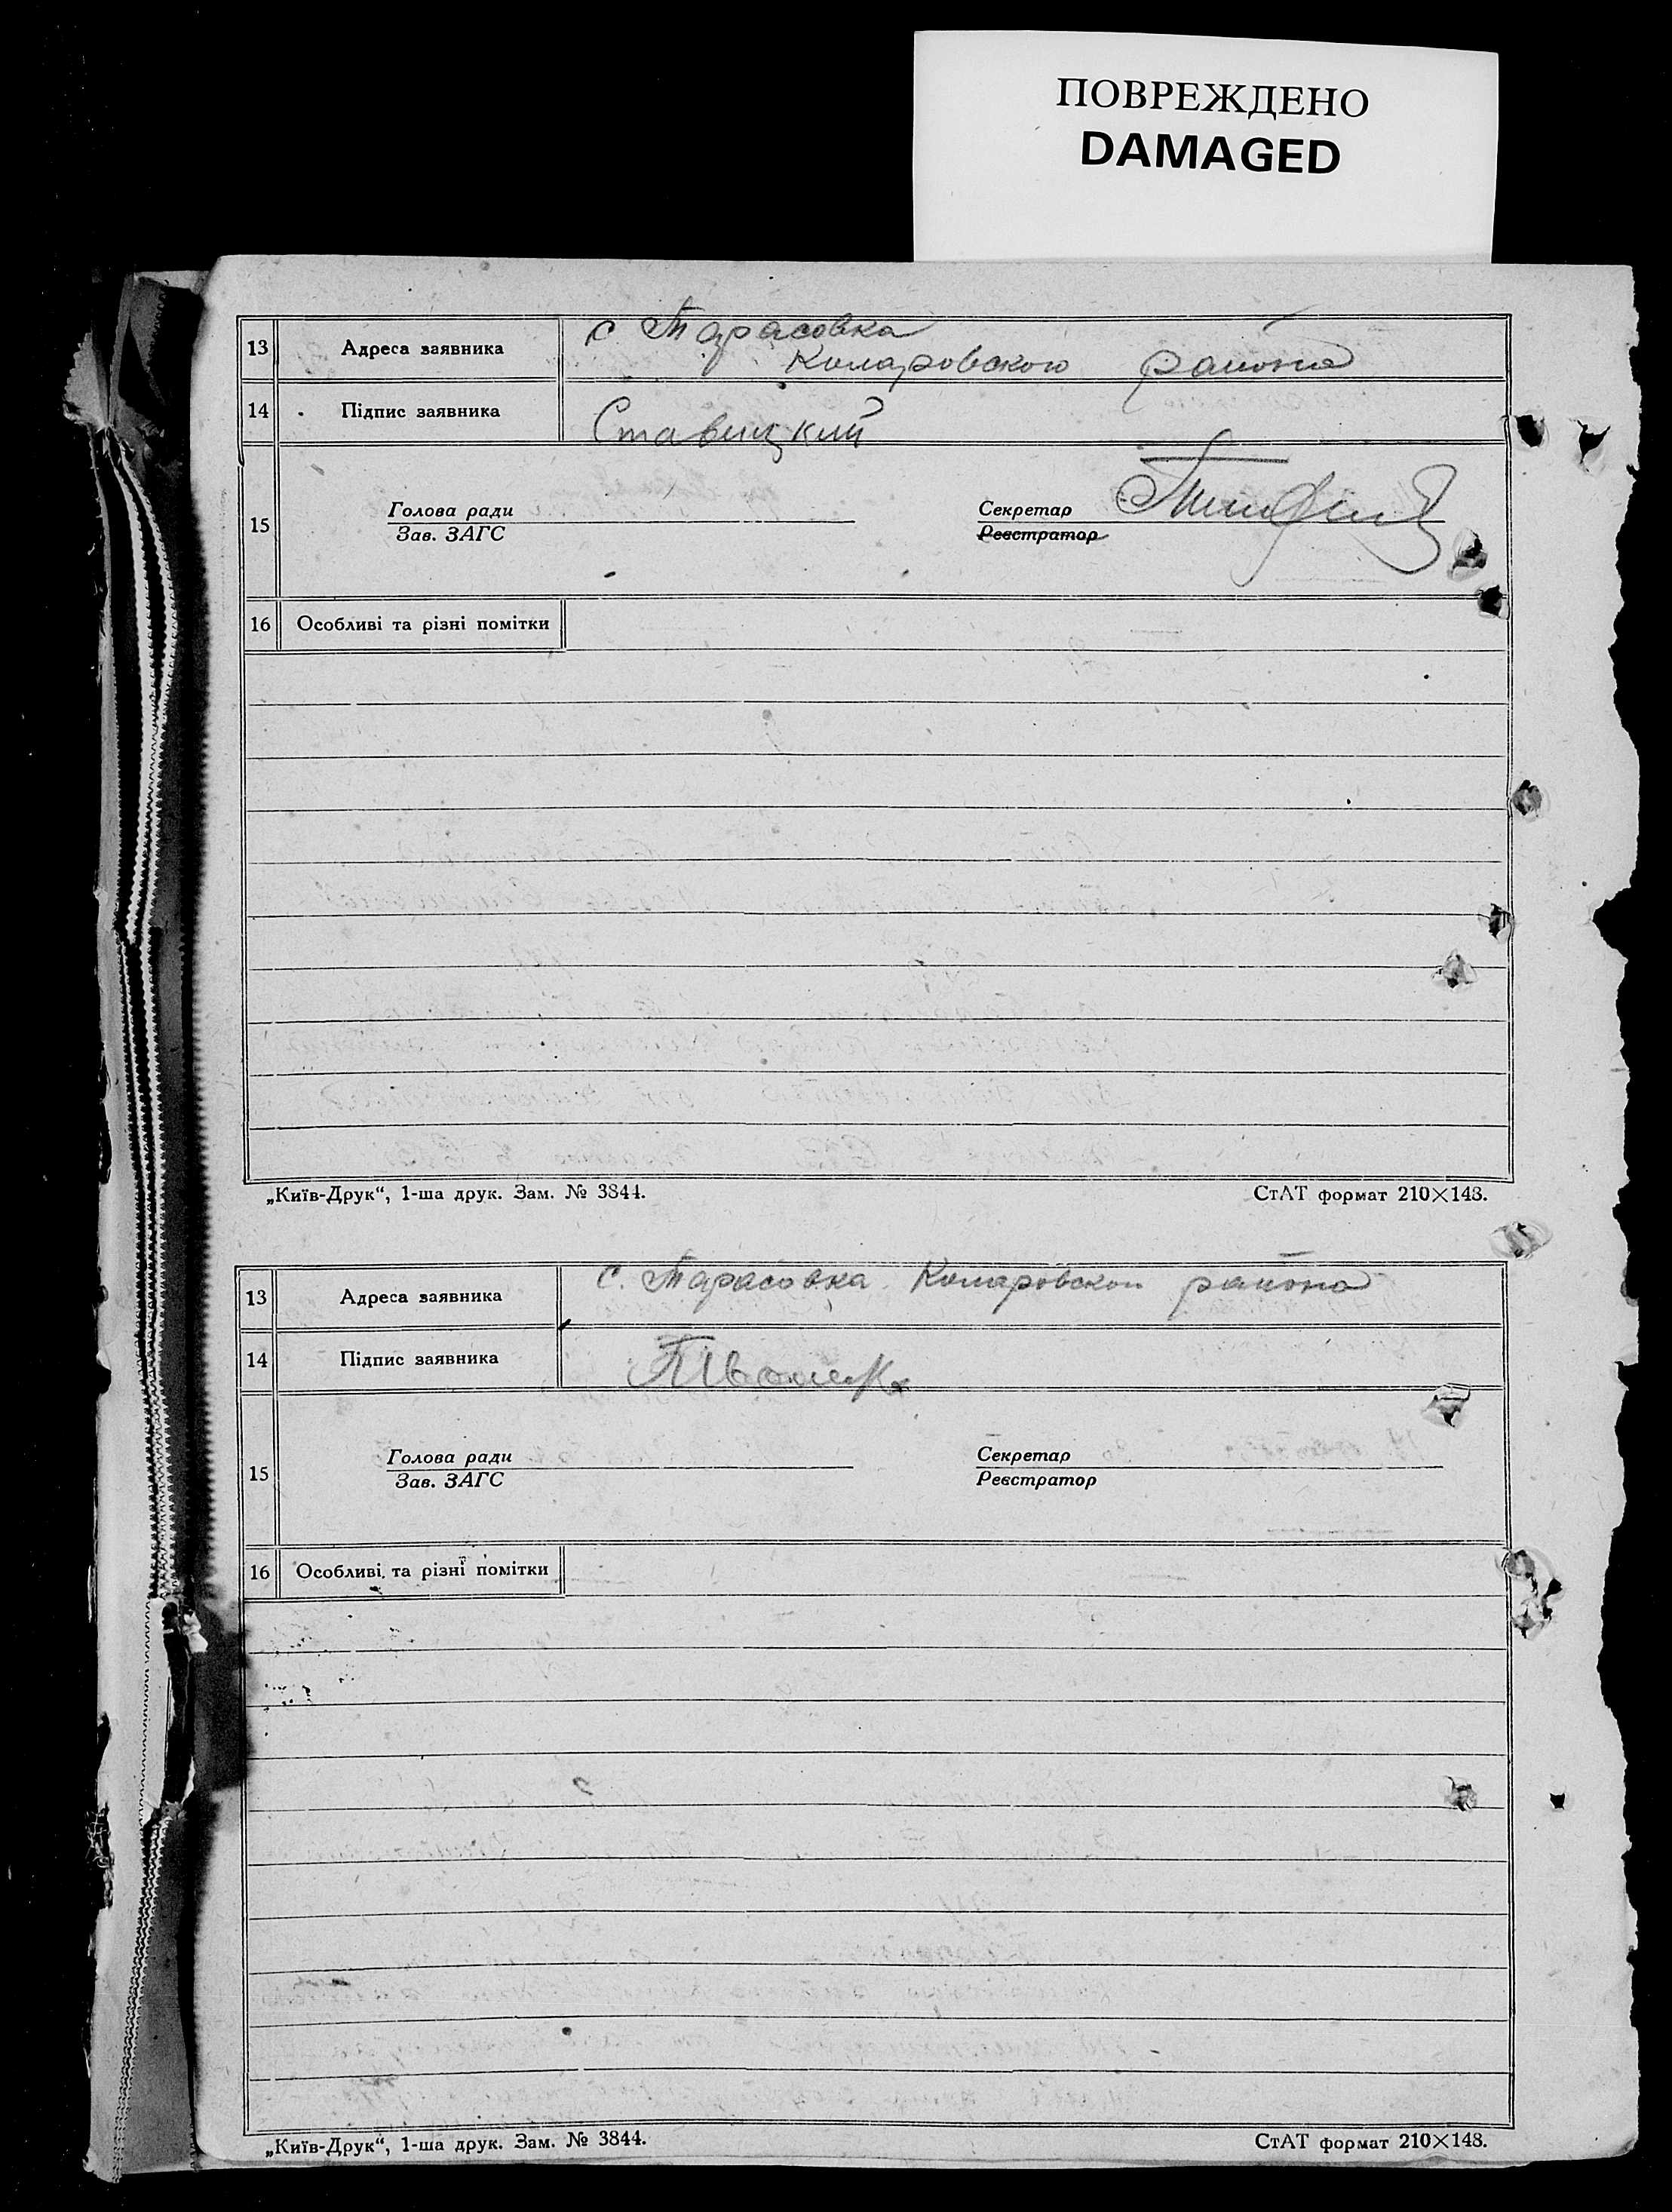 ПОВРЕЖДЕНО
DAMAGED
13 Адреса заявника с Тарасовка
Комаровского района
14 Підпис заявника Ставицкий
15 Голова ради Секретар
Зав. ЗАГС Реєстратор
16 Особливі та різні помітки
„Київ-Друк“, 1-ша друк. Зам. № 3844. СтАТ формат 210×148.
13 Адреса заявника с. Тарасовка района
14 Підпис заявника
15 Голова ради Секретар
Зав. ЗАГС Реєстратор
16 Особливі та різні помітки
„Київ-Друк“, 1-ша друк. Зам. № 3844. СтАТ формат 210×148.